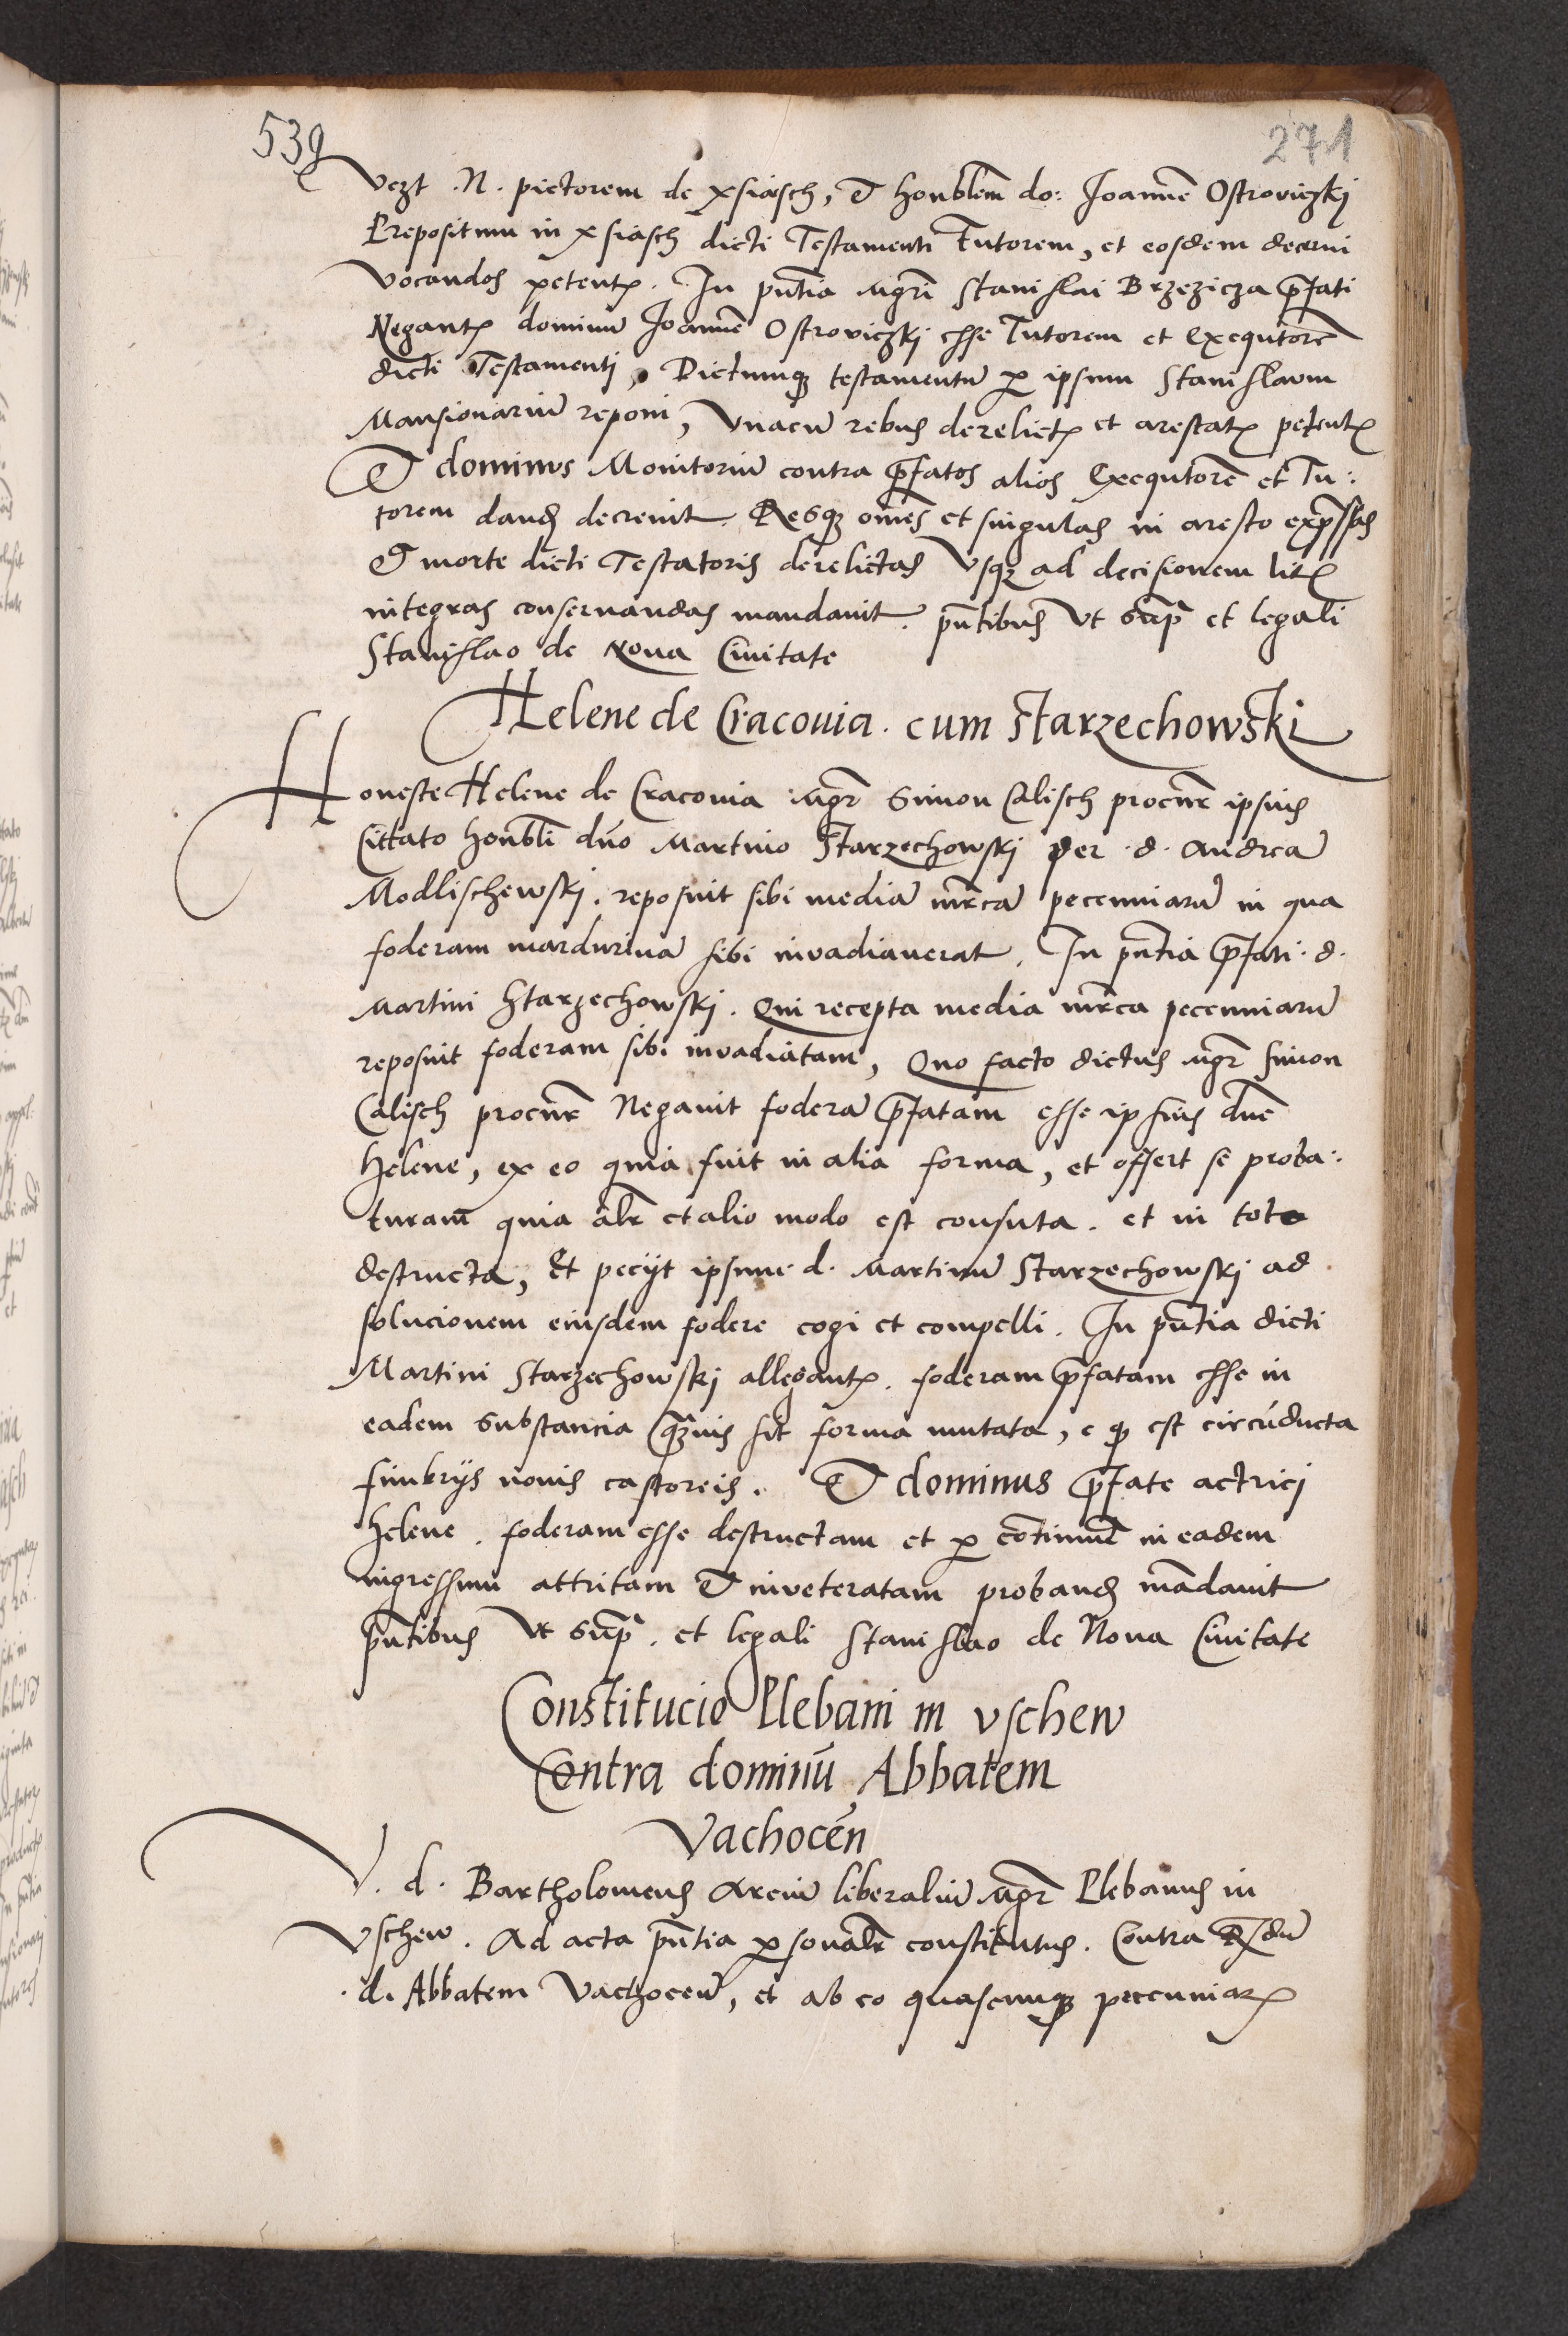 539
271
vezt .N. pictorem de xsiasch, Et honblem do: Joannē Ostroviczkj
Prepositum in xsiasch dicti Testamenti Tutorem, et eosdem decerni
vocandos petentꝭ. In pn̄tia mgr̄i Stanislai Brzezicza p̄fati
Negantꝭ dominū Joannē Ostroviczkj esse Tutorem et Exequtorē
dicti Testamentj, Dictumqꝫ testamentū ꝑ ipsum Stanislaum
Mansionariū reponi, vnacū rebus derelictꝭ et arestatꝭ petentꝭ
Et dominus Monitoriū contra p̄fatos alios Exequtorē et Tu:
torem dand̄ decreuit. Resqꝫ om̄es et singulas in aresto exp̄ssas
Et morte dicti Testatoris derelictas vsqꝫ ad decisionem litꝭ
integras conseruandas mandauit. pn̄tibus vt sup̄ et legali
Stanislao de Noua Ciuitate
Helene de Cracouia. cum Starzechowski
Honeste Helene de Cracouia mgr̄ Simon Calisch procur̄ ipsius
Cittato honbli dn̄o Martino Starzechowskj per .d. Andreā
Modlischewskj. reposuit sibi mediā mr̄cā pecunniarū in qua
foderam mardurinā sibi invadiauerat. In pn̄tia p̄fati .d.
Martini Starzechowskj. Qui recepta media mr̄ca pecunniarū
reposuit foderam sibi invadiatam, Quo facto dictus mgr̄ Simon
Calisch procur̄ Negauit foderā p̄fatam esse ipsius dn̄e
Helene, ex eo quia fuit in alia forma, et offert se proba:
turam quia alr̄ et alio modo est consuta. et in toto
destructa, Et pecijt ipsum d. Martinū Starzechowskj ad
solucionem eiusdem fodere cogi et compelli. In pn̄tia dicti
Martini Starzechowskj allegantꝭ. foderam p̄fatam esse in
eadem substancia q̄uis sit forma mutata, e qꝫ est circūducta
fimbrijs nouis castoreis. Et dominus p̄fate actricj
Helene. foderam esse destructam et ꝑ continuū in eadem
ingressum attritam Et inueteratam proband̄ mādauit
pn̄tibus vt sup̄. et legali Stanislao de Noua Ciuitate
Constitucio Plebani in vschew
Contra dominū Abbatem
Vachocēn
V. d. Bartholomeus Arciū liberaliū mgr̄ Plebanus in
Vschew. Ad acta pn̄tia ꝑsonalr̄ constitutus. Contra Rn̄dū
.d. Abbatem Vachocen̄, et ab eo quascunqꝫ peccuniarꝭ